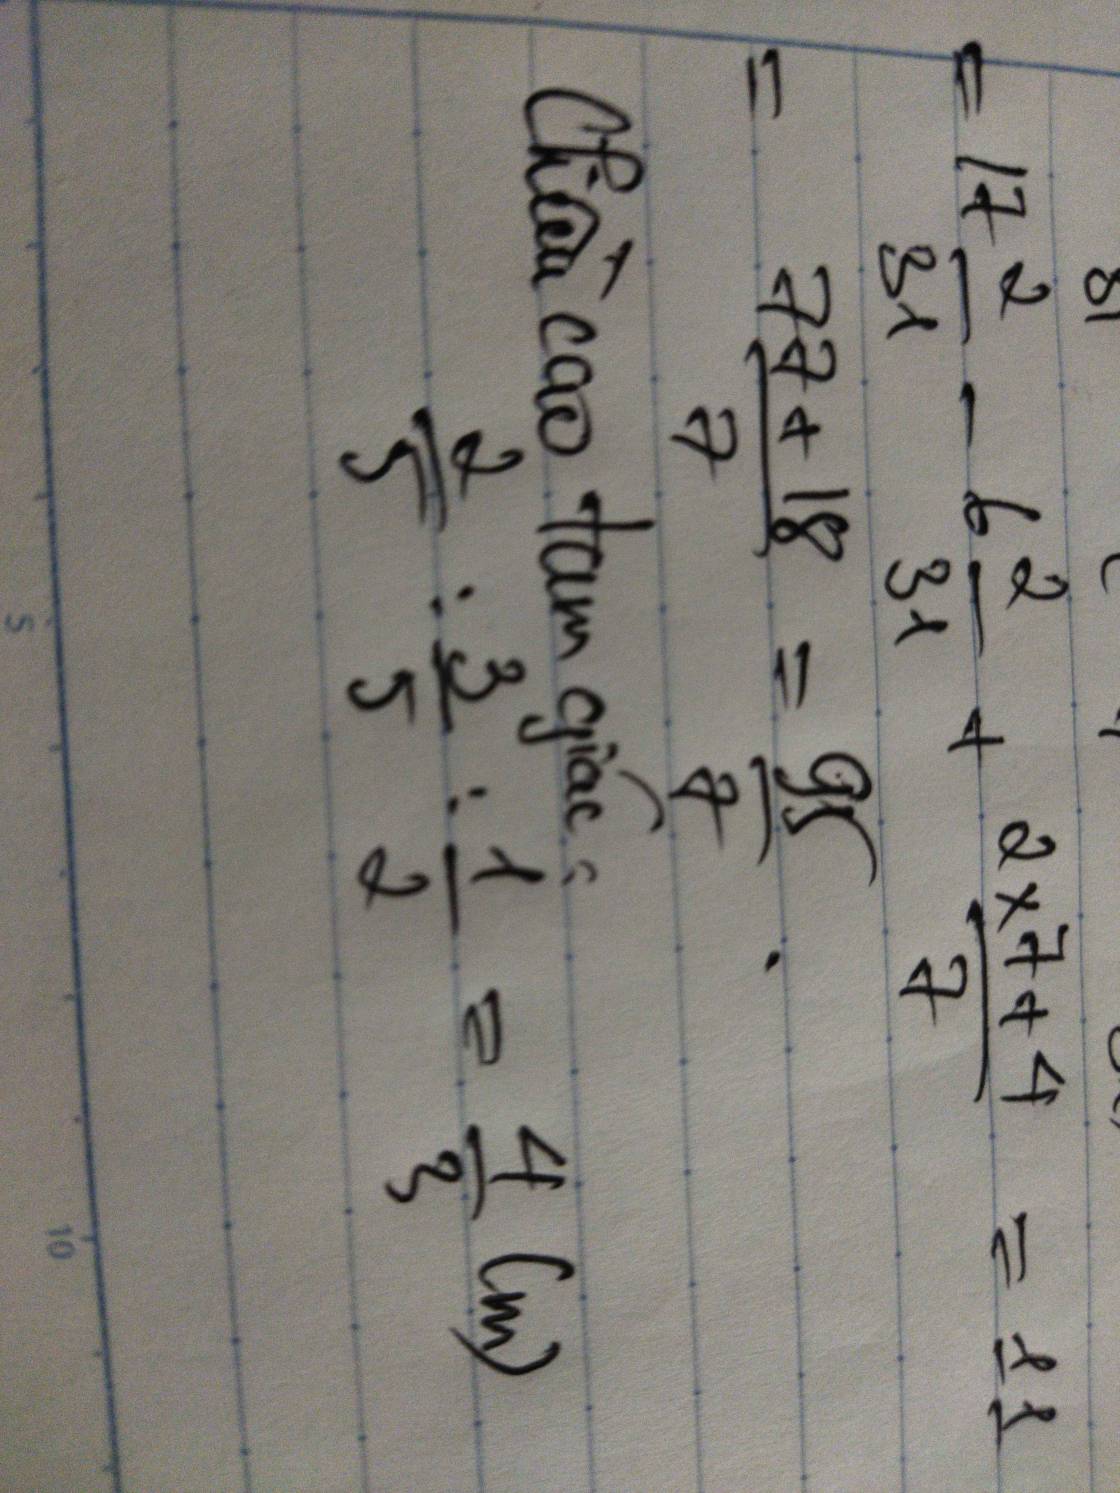 = 17 2/31 - 6 2/31 + (2×7+4)/7 = 11
= (77+18)/7 = 95/7.
Chiều cao tam giác:
2/5 : 3/5 : 1/2 = 4/3 (m)
5 10